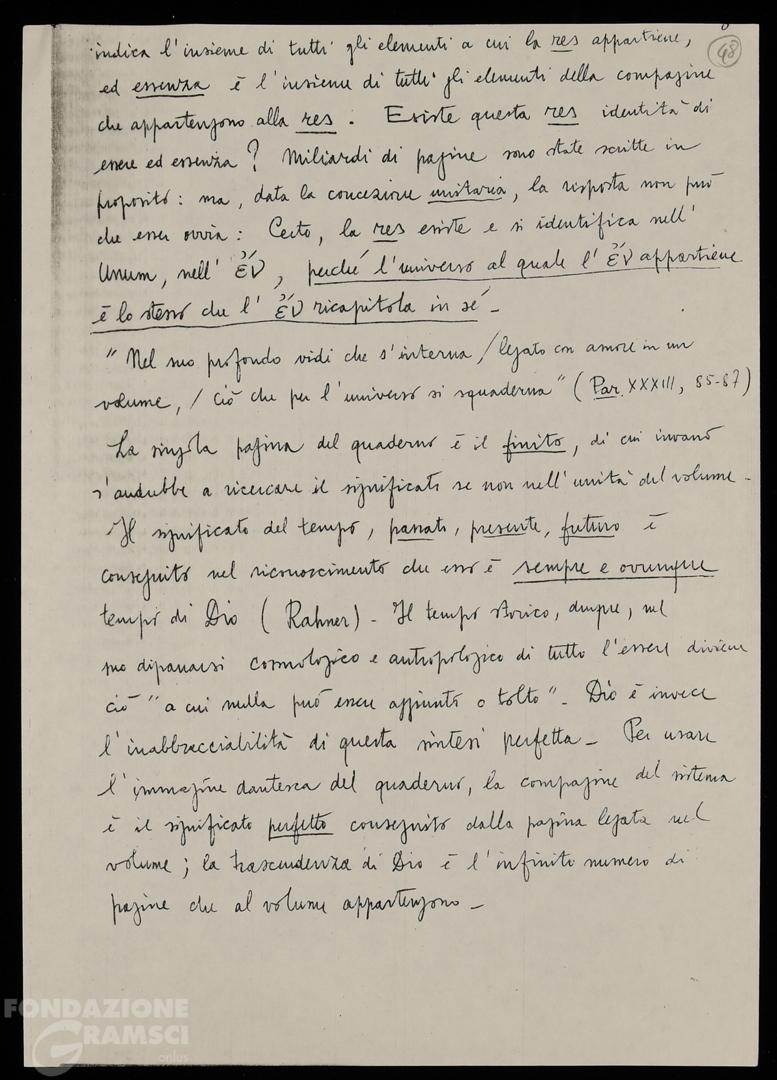 48
indica l'insieme di tutti gli elementi a cui la res appartiene,
ed essenza è l'insieme di tutti gli elementi della compagine
che appartengono alla res. Esiste questa res identità di
essere ed essenza? Miliardi di pagine sono state scritte in
proposito: ma, data la concezione unitaria, la risposta non può
che esser ovvia: Certo, la res esiste e si identifica nell'
Unum, nell' ἕν, perché l'universo al quale l' ἕν appartiene
è lo stesso che l' ἕν ricapitola in sé -
"Nel suo profondo vidi che s'interna / legato con amore in un
volume, / ciò che per l'universo si squaderna" (Par. XXXIII, 85-87)
La singola pagina del quaderno è il finito, di cui invano
s'andrebbe a ricercare il significato se non nell'unità del volume -
Il significato del tempo, passato, presente, futuro è
conseguito nel riconoscimento che esso è sempre e ovunque
tempo di Dio (Rahner) - Il tempo storico, dunque, nel
suo dipanarsi cosmologico e antropologico di tutto l'essere diviene
ciò "a cui nulla può essere aggiunto o tolto" - Dio è invece
l'inabbracciabilità di questa sintesi perfetta - Per usare
l'immagine dantesca del quaderno, la compagine del sistema
è il significato perfetto conseguito dalla pagina legata nel
volume; la trascendenza di Dio è l'infinito numero di
pagine che al volume appartengono -
FONDAZIONE
GRAMSCI
onlus